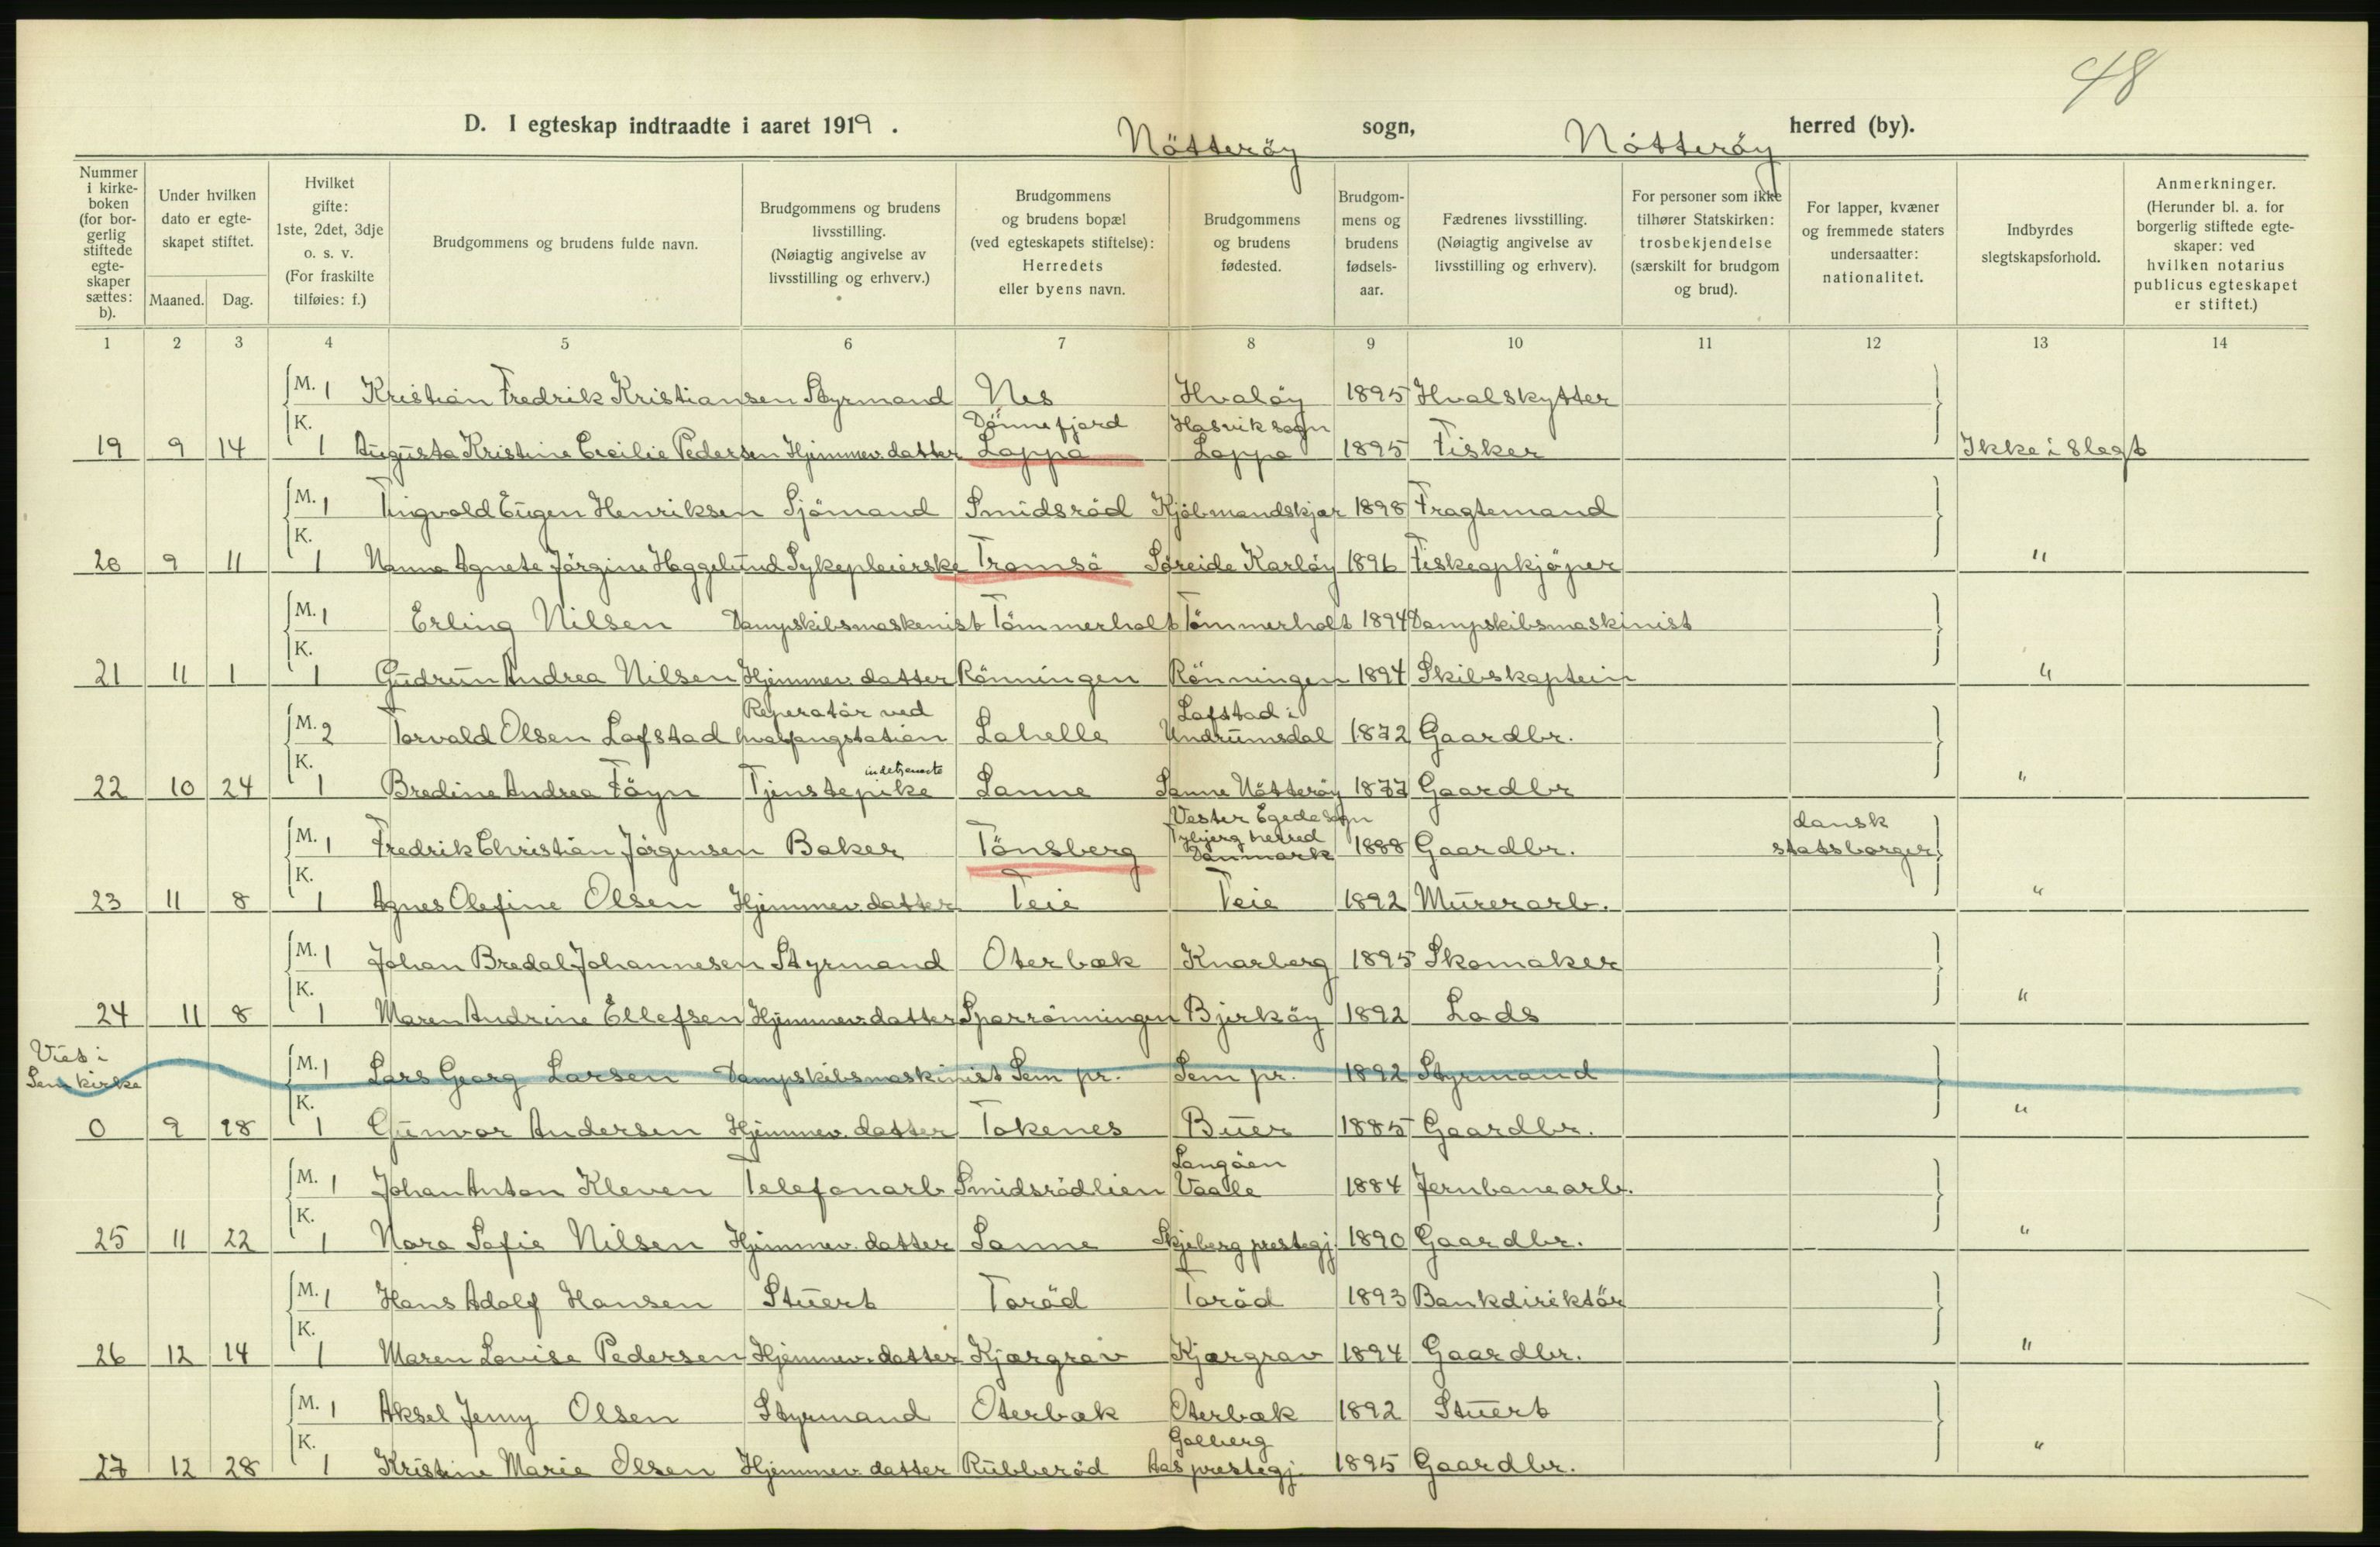 48
D. I egteskap indtraadte i aaret 1919. Nötteröy sogn, Nötteröy herred (by).
Nummer i kirkeboken (for borgerlig stiftede egteskaper sættes: b).
Under hvilken dato er egteskapet stiftet.
Maaned. Dag.
Hvilket gifte: 1ste, 2det, 3dje o. s. v. (For fraskilte tilføies: f.)
Brudgommens og brudens fulde navn.
Brudgommens og brudens livsstilling. (Nøiagtig angivelse av livsstilling og erhverv.)
Brudgommens og brudens bopæl (ved egteskapets stiftelse): Herredets eller byens navn.
Brudgommens og brudens fødested.
Brudgommens og brudens fødselsaar.
Fædrenes livsstilling. (Nøiagtig angivelse av livsstilling og erhverv).
For personer som ikke tilhører Statskirken: trosbekjendelse (særskilt for brudgom og brud).
For lapper, kvæner og fremmede staters undersaatter: nationalitet.
Indbyrdes slegtskapsforhold.
Anmerkninger. (Herunder bl. a. for borgerlig stiftede egteskaper: ved hvilken notarius publicus egteskapet er stiftet.)
1 2 3 4 5 6 7 8 9 10 11 12 13 14
M. 1 Kristian Fredrik Kristiansen Styrmand Nes Hvaløy 1895 Hvalskytter
19 9 14 K. 1 Augusta Kristine Cecilie Pedersen Hjemmev. datter Dönnefjord Loppa Hasvik sogn Loppa 1895 Fisker Ikke i slegt
M. 1 Tingvold Eugen Henriksen Sjömand Smidsröd Kjöbmandskjær 1898 Fragtemand
20 9 11 K. 1 Nanna Agnete Jörgine Heggelund Sykepleierske Tromsö Söreide Karlöy 1896 Fiskeopkjöper "
M. 1 Erling Nilsen Dampskibsmaskenist Tömmerholt Tömmerholt 1894 Dampskibsmaskinist
21 11 1 K. 1 Gudrun Andrea Nilsen Hjemmev. datter Rönningen Rönningen 1894 Skibskaptein "
M. 2 Torvald Olsen Lofstad Reperatör ved hvalfangstation Lahelle Lofstad i Undrumsdal 1872 Gaardbr.
22 10 24 K. 1 Bredine Andrea Föyn Tjenstepike indetjeneste Sanne Sanne Nötteröy 1877 Gaardbr "
M. 1 Fredrik Christian Jörgensen Baker Tönsberg Vester Egede sogn Tybjerg herred Danmark 1888 Gaardbr. dansk statsborger
23 11 8 K. 1 Agnes Olefine Olsen Hjemmev. datter Teie Teie 1892 Murerarb. "
M. 1 Johan Bredal Johannesen Styrmand Oterbæk Knarberg 1895 Skomaker
24 11 8 K. 1 Maren Andrine Ellefsen Hjemmev. datter Sparrönningen Bjerköy 1892 Lods "
Viet i Sem kirke
M. 1 Lars Georg Larsen Dampskibsmaskinist Sem pr. Sem pr. 1892 Styrmand
0 9 28 K. 1 Gunvor Andersen Hjemmev. datter Tokenes Buer 1885 Gaardbr. "
M. 1 Johan Anton Kleven Telefonarb Smidsrödlien Langöen Vaale 1884 Jernbanearb.
25 11 22 K. 1 Nora Sofie Nilsen Hjemmev. datter Sanne Skjeberg prestegj. 1890 Gaardbr. "
M. 1 Hans Adolf Hansen Stuert Toröd Toröd 1893 Bankdirektör
26 12 14 K. 1 Maren Lovise Pedersen Hjemmev. datter Kjærgrav Kjærgrav 1894 Gaardbr. "
M. 1 Aksel Jenny Olsen Styrmand Oterbæk Oterbæk 1892 Stuert
27 12 28 K. 1 Kristine Marie Olsen Hjemmev. datter Rubberöd Golberg Aas prestegj. 1895 Gaardbr. "